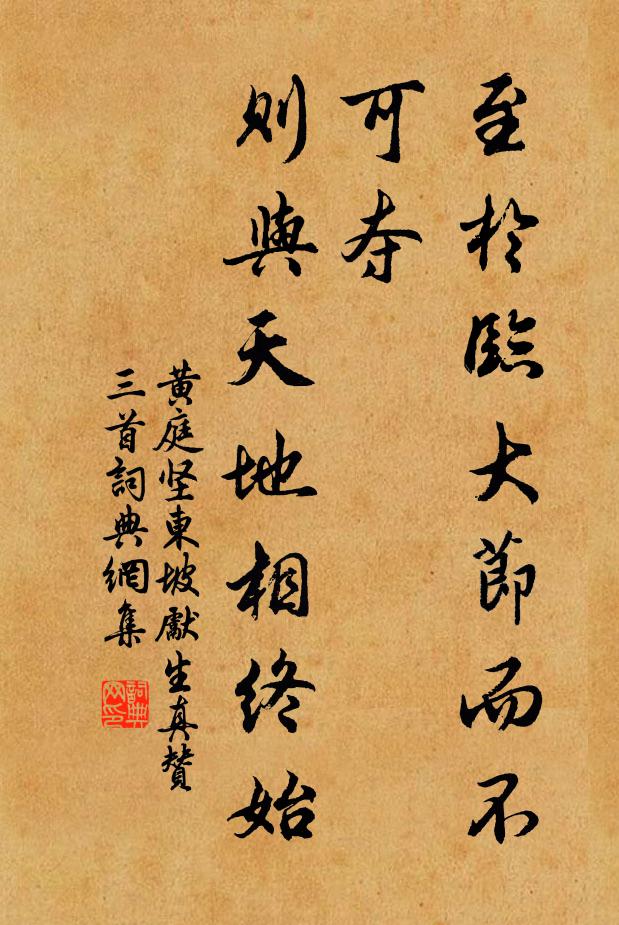 至於臨大節而不
可夺
則與天地相終始
黄庭坚東坡獻生真贊
三首詞典網集
詞典
网印